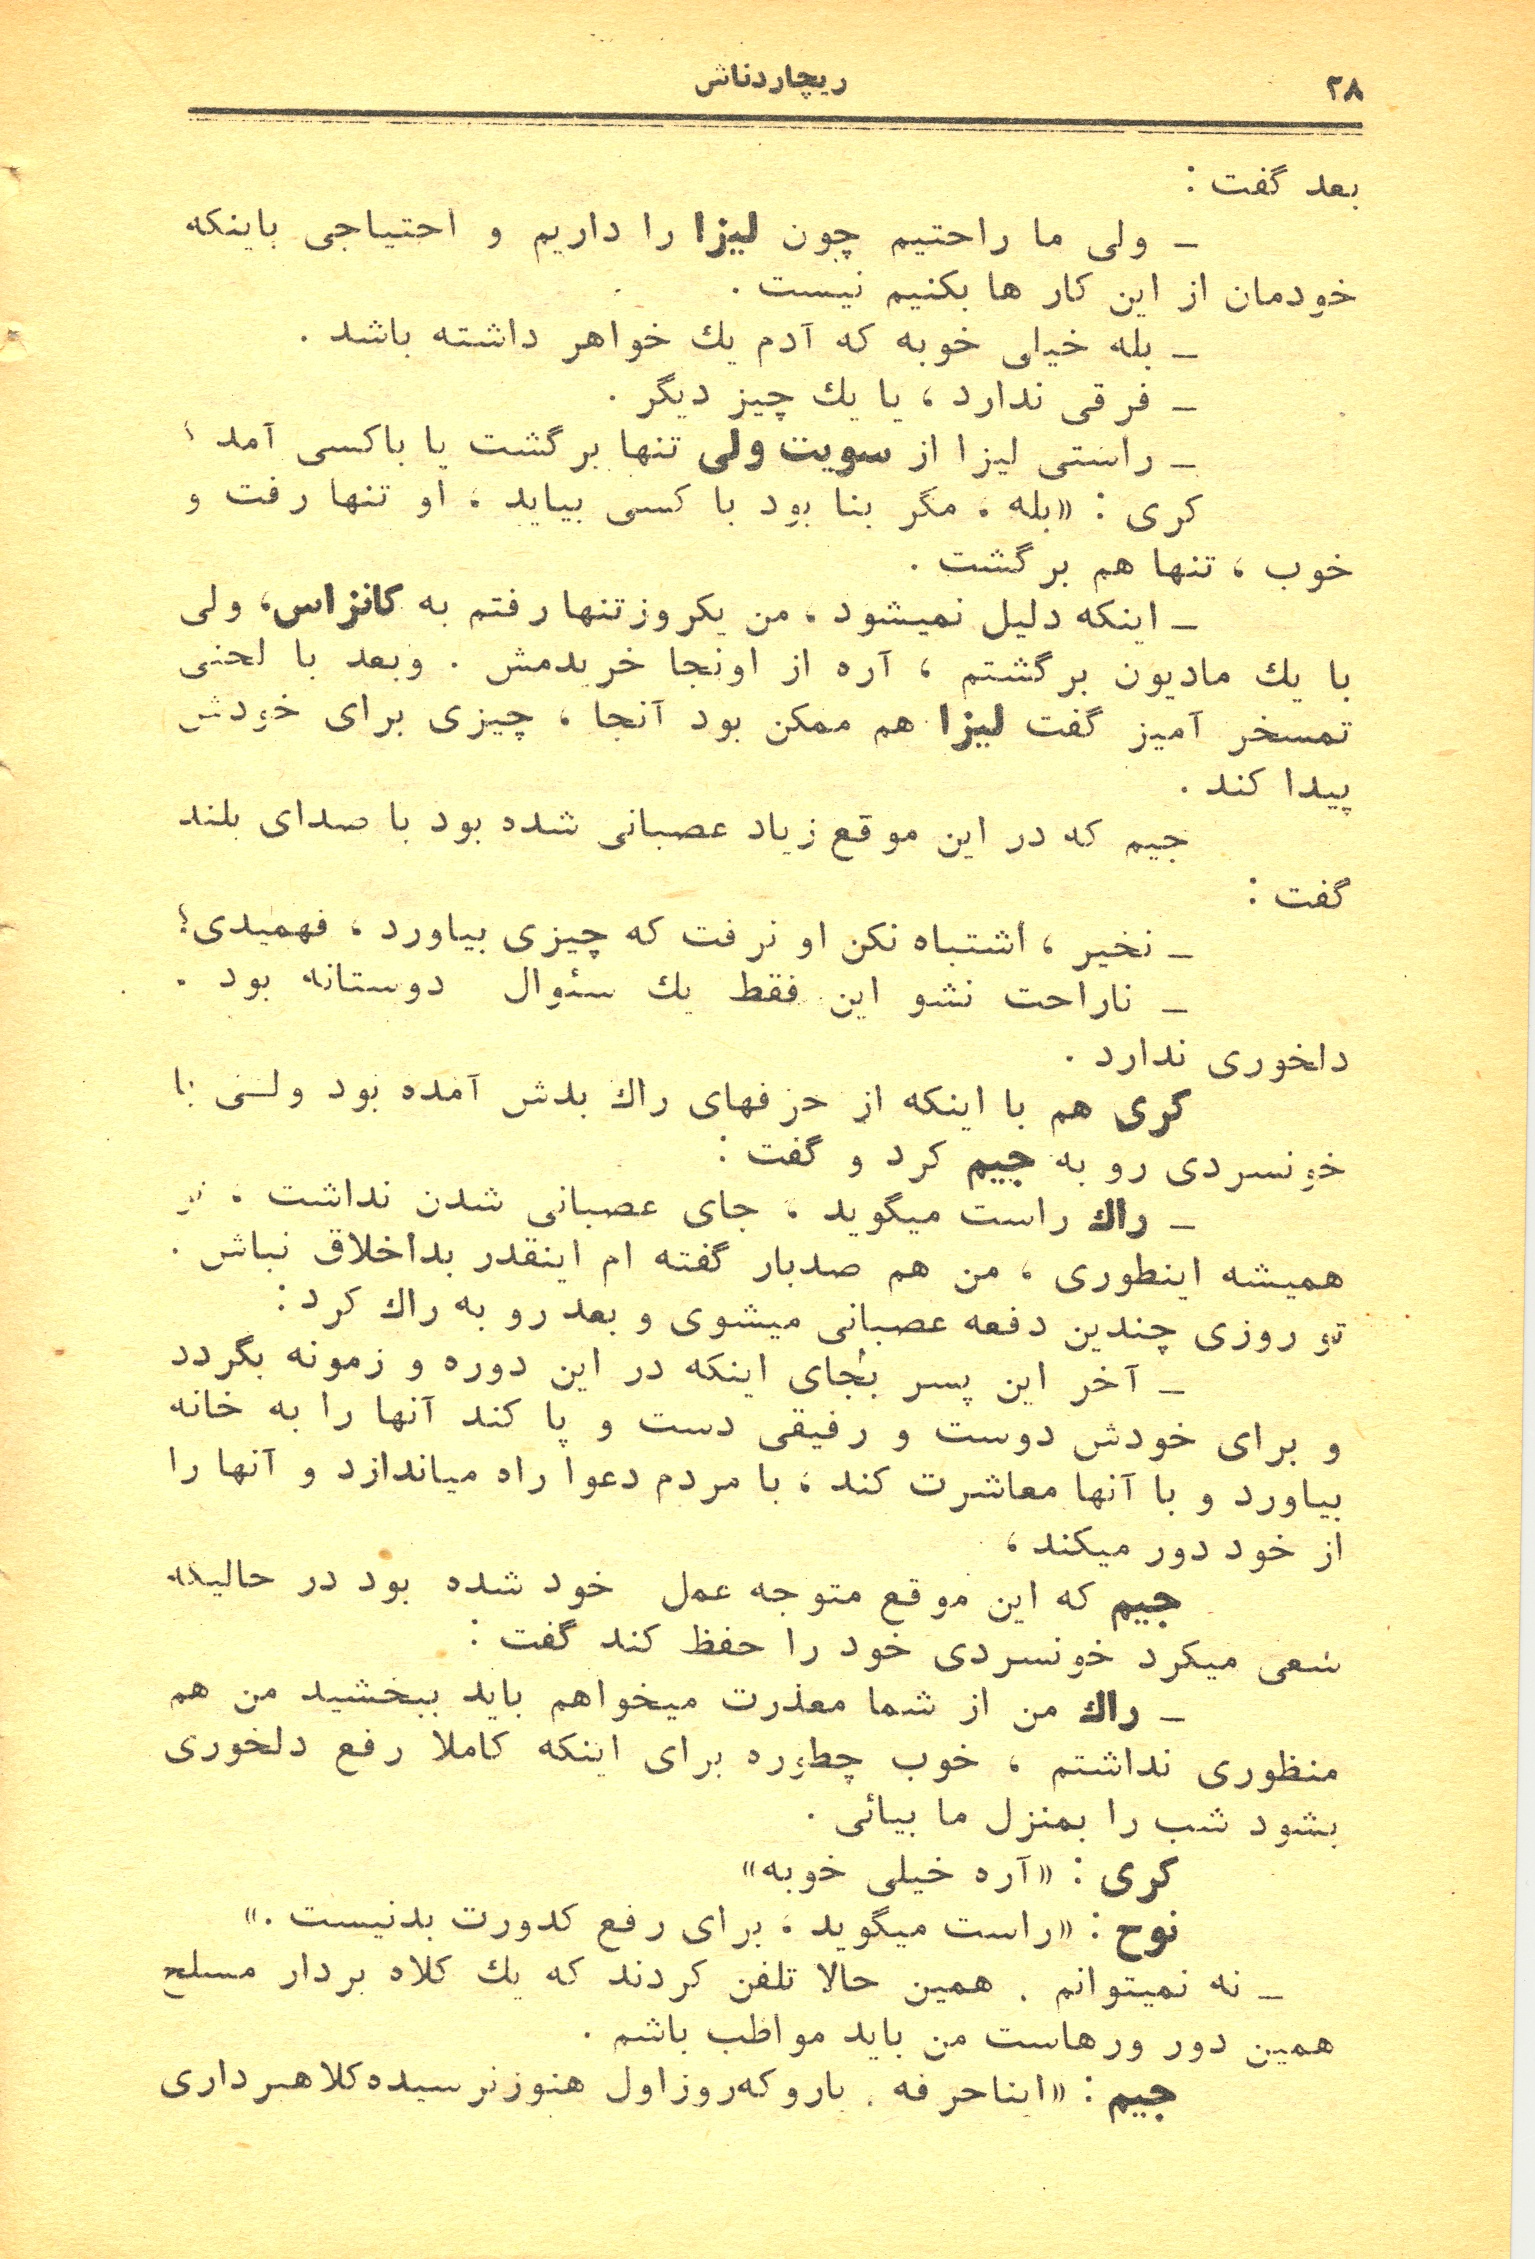 ۲۸
ریچاردناش
بعد گفت :
ـ ولی ما راحتیم چون لیزا را داریم و احتیاجی باینکه
خودمان از این کار ها بکنیم نیست .
ـ بله خیلی خوبه که آدم یك خواهر داشته باشد .
ـ فرقی ندارد ، یا یك چیز دیگر .
ـ راستی لیزا از سویت ولی تنها برگشت یا باکسی آمد ؟
کری : «بله ، مگر بنا بود با کسی بیاید ، او تنها رفت و
خوب ، تنها هم برگشت .
ـ اینکه دلیل نمیشود ، من یکروز تنها رفتم به کانزاس، ولی
با یك مادیون برگشتم ، آره از اونجا خریدمش . وبعد با لحنی
تمسخر آمیز گفت لیزا هم ممکن بود آنجا ، چیزی برای خودش
پیدا کند .
جیم که در این موقع زیاد عصبانی شده بود با صدای بلند
گفت :
ـ نخیر ، اشتباه نکن او نرفت که چیزی بیاورد ، فهمیدی؟
ـ ناراحت نشو این فقط یك سئوال دوستانه بود .
دلخوری ندارد .
کری هم با اینکه از حرفهای راك بدش آمده بود ولی با
خونسردی رو به جیم کرد و گفت :
ـ راك راست میگوید ، جای عصبانی شدن نداشت ، تو
همیشه اینطوری ، من هم صدبار گفته ام اینقدر بداخلاق نباش .
تو روزی چندین دفعه عصبانی میشوی و بعد رو به راك کرد :
ـ آخر این پسر بجای اینکه در این دوره و زمونه بگردد
و برای خودش دوست و رفیقی دست و پا کند آنها را به خانه
بیاورد و با آنها معاشرت کند ، با مردم دعوا راه میاندازد و آنها را
از خود دور میکند ،
جیم که این موقع متوجه عمل خود شده بود در حالیکه
سعی میکرد خونسردی خود را حفظ کند گفت :
ـ راك من از شما معذرت میخواهم باید ببخشید من هم
منظوری نداشتم ، خوب چطوره برای اینکه کاملا رفع دلخوری
بشود شب را بمنزل ما بیائی .
کری : «آره خیلی خوبه»
نوح : «راست میگوید ، برای رفع کدورت بدنیست .»
ـ نه نمیتوانم . همین حالا تلفن کردند که یك کلاه بردار مسلح
همین دور ورهاست من باید مواظب باشم .
جیم : «اینا حرفه . یارو که روز اول هنوز نرسیده کلاهبرداری